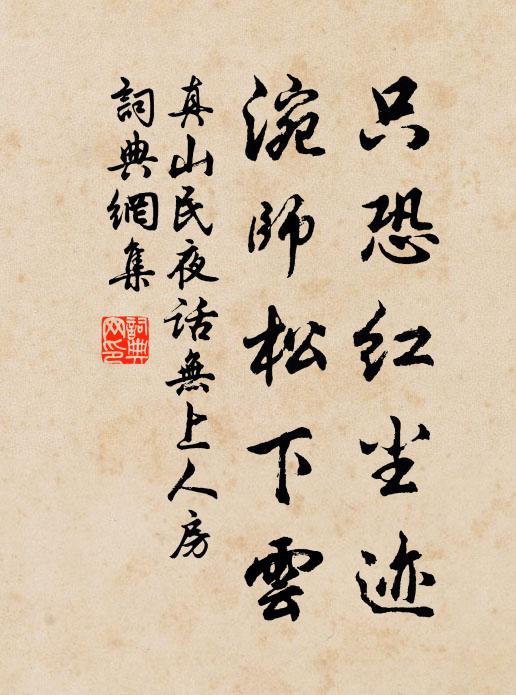 只恐红尘迹
涴師松下雲
真山民夜话無上人房
詞典網集
詞典网印